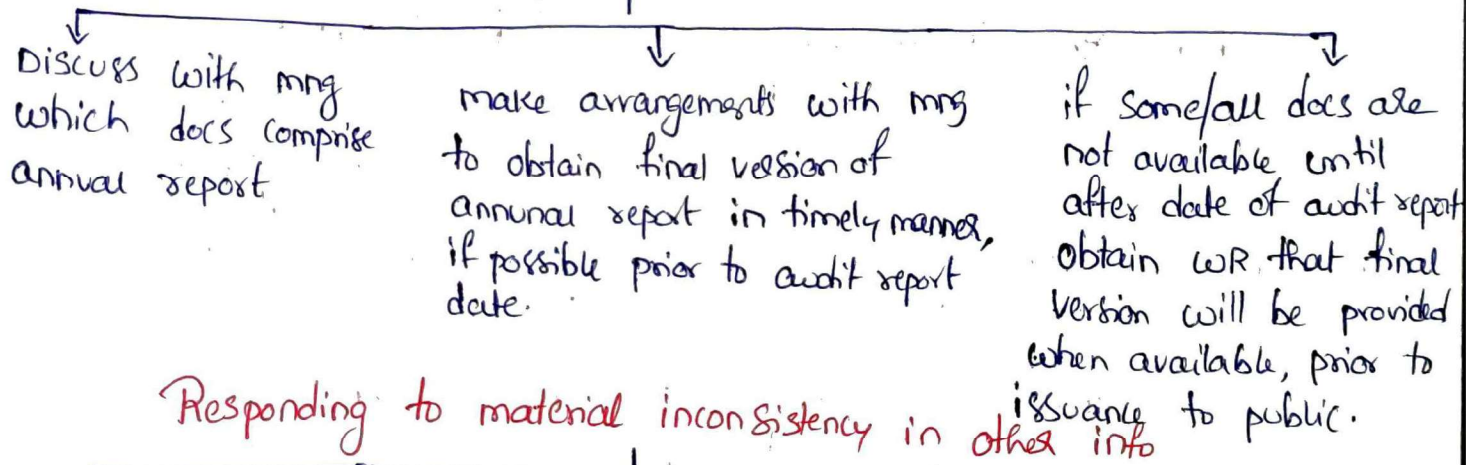 Discuss with mng
which docs comprise
annual report
make arrangements with mng
to obtain final version of
annunal report in timely manner,
if possible prior to audit report
date.
if some/all docs are
not available until
after date of audit report
obtain WR that final
version will be provided
when available, prior to
issuance to public.
Responding to material inconsistency in other info